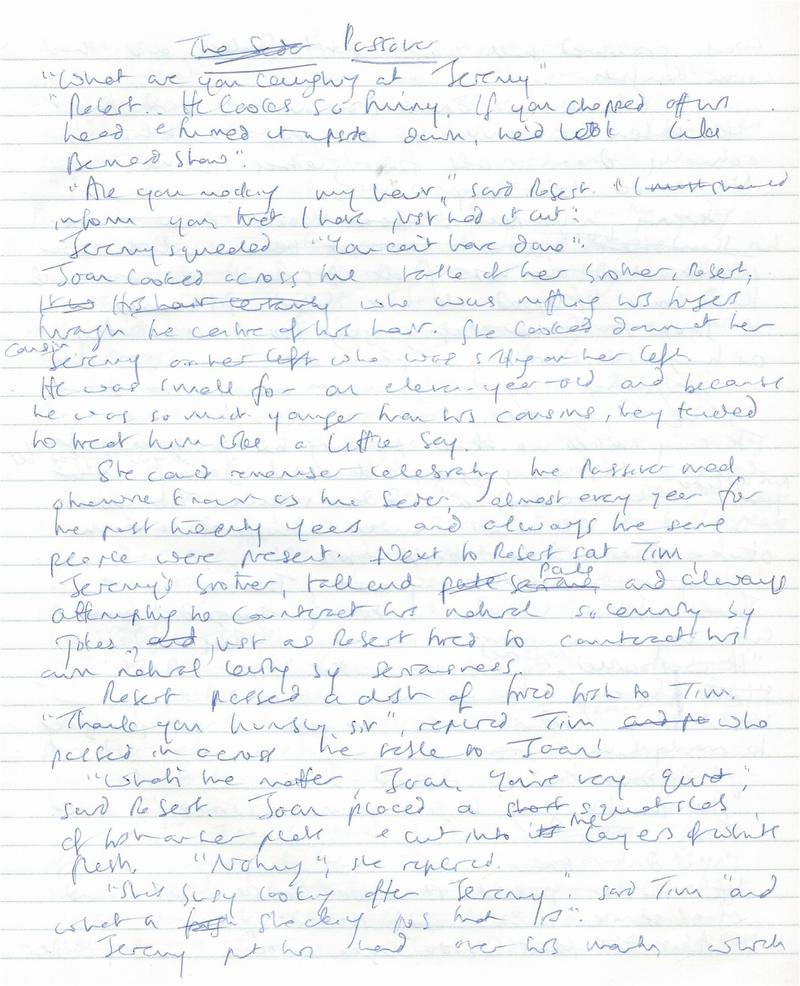 The Seder Passover
"What are you laughing at Jeremy".
"Robert.. He looks so funny. If you chopped off his
head & turned it upside down, he'd look like
Bernard Shaw".
"Are you mocking my hair," said Robert. "I must should
inform you that I have just had it cut".
Jeremy squealed "You can't have done".
Joan looked across the table at her brother, Robert,
It was His hair certainly who was ruffling his fingers
through the centre of his hair. She looked down at her
cousin
Jeremy on her left who was sitting on her left.
He was small for an eleven-year-old and because
he was so much younger than his cousins, they tended
to treat him like a little boy.
She could remember celebrating the Passover meal
otherwise known as the Seder, almost every year for
the past twenty years and always the same
people were present. Next to Robert sat Tim,
Jeremy's brother, tall and pale pale and always
attempting to counteract his natural solemnity by
jokes, and just as Robert tried to counteract his
own natural levity by seriousness.
Robert passed a dish of fried fish to Tim.
"Thank you humbly, sir", replied Tim and pa who
passed it across the table to Joan.
"What's the matter, Joan. You're very quiet,"
said Robert. Joan placed a short squat slab
of fish on her plate & cut into its the layers of white
flesh. "Nothing", she replied.
"She's busy looking after Jeremy", said Tim "and
what a shocking job that is".
Jeremy put his hand over his mouth which